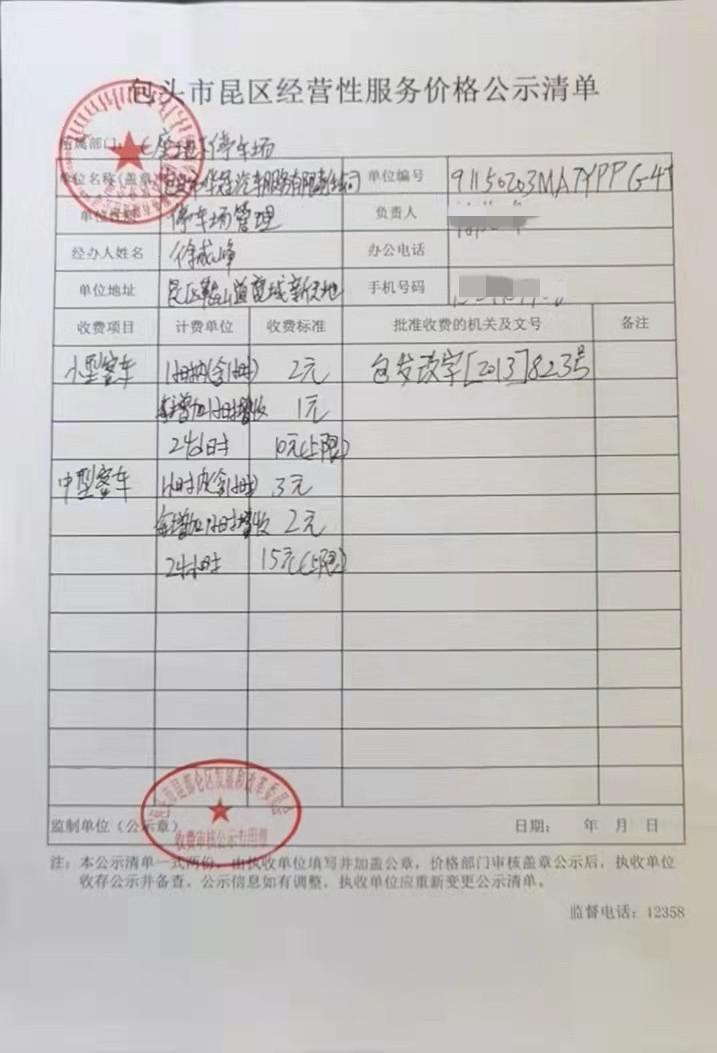 包头市昆区经营性服务价格公示清单
所属部门: C座地下停车场
单位名称(盖章) 汽车服务有限责任公司 单位编号 91150203MA7YPPG-4
停车场管理 负责人
经办人姓名 徐成峰 办公电话
单位地址 昆区鞍山道 新天地 手机号码
收费项目 计费单位 收费标准 批准收费的机关及文号 备注
小型客车 1小时内(含1小时) 2元 包发改字[2013]823号
每增加1小时增收 1元
24小时 10元(上限)
中型客车 1小时内(含1小时) 3元
每增加1小时增收 2元
24小时 15元(上限)
包头市昆都仑区发展和改革委员会
收费审核公示专用章
监制单位(公示章) 日期: 年 月 日
注:本公示清单一式两份,由执收单位填写并加盖公章,价格部门审核盖章公示后,执收单位
收存公示并备查。公示信息如有调整,执收单位应重新变更公示清单。
监督电话:12358